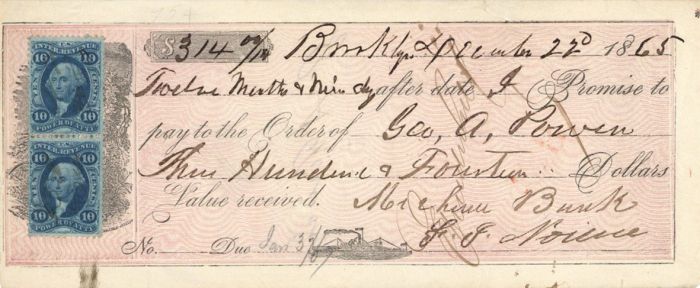 U.S. INTER. REVENUE
10 10
TEN CENTS
POWER OF ATT'Y
10 10
U.S. INTER. REVENUE
10 10
TEN CENTS
POWER OF ATT'Y
10 10
$314 00/100 Brooklyn December 22d 1865
Twelve Months & Nine dys after date I Promise to
pay to the Order of Geo, A, Power
Three Hundred & Fourteen Dollars
Value received. Mechanic Bank
No. Due Jan 3/67